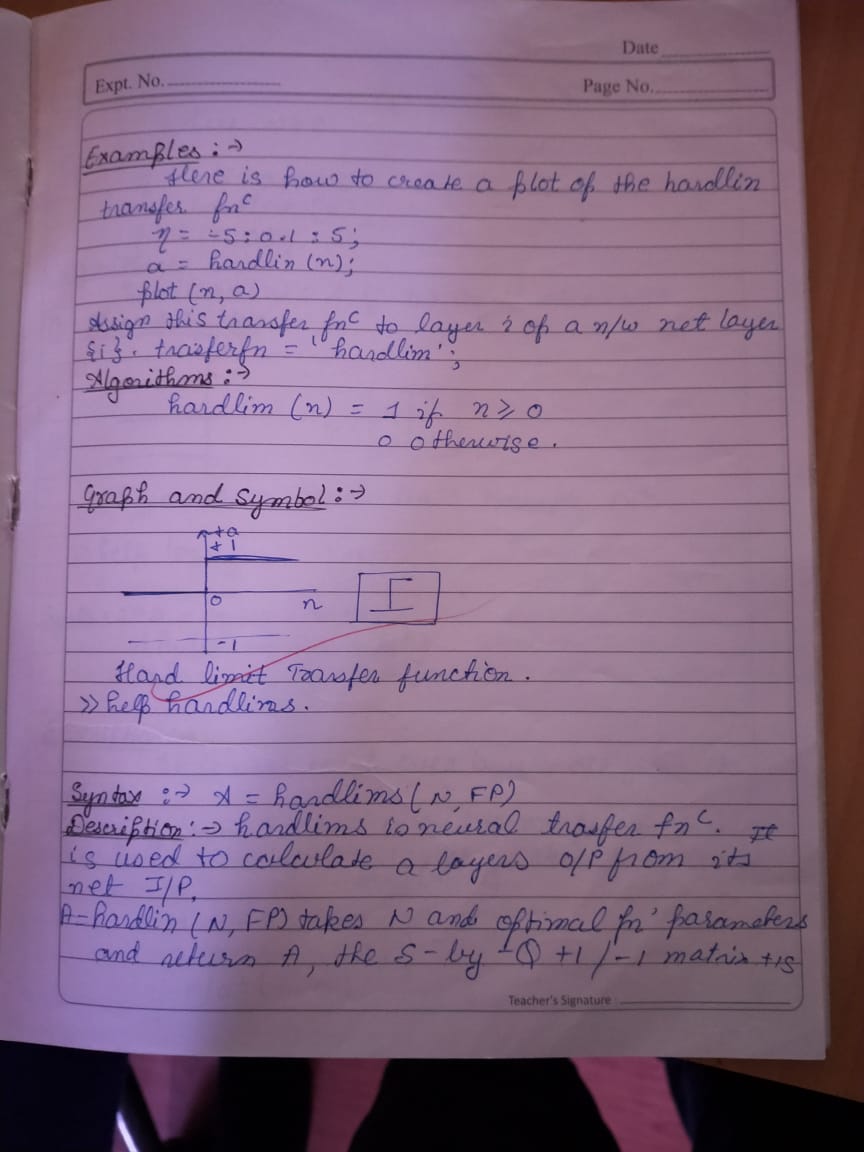 Date
Expt. No.
Page No.
Examples :→
Here is how to create a plot of the hardlin
transfer fnc
η = -5 : 0.1 : 5;
a = hardlin (n);
plot (n, a)
Assign this transfer fnc to layer i of a n/w net layer
{i}. trasferfn = 'hardlim';
Algorithms :→
hardlim (n) = 1 if n ≥ 0
0 otherwise.
Graph and Symbol :→
+a
+1
0 n
-1
Hard limit Transfer function.
>> help hardlims.
Syntax :→ A = hardlims (N, FP)
Description :→ hardlims is neural trasfer fnc. It
is used to calculate a layers O/P from its
net I/P.
A = hardlin (N, FP) takes N and optimal fn' parameters
and return A, the S-by-Q +1/-1 matrix
Teacher's Signature